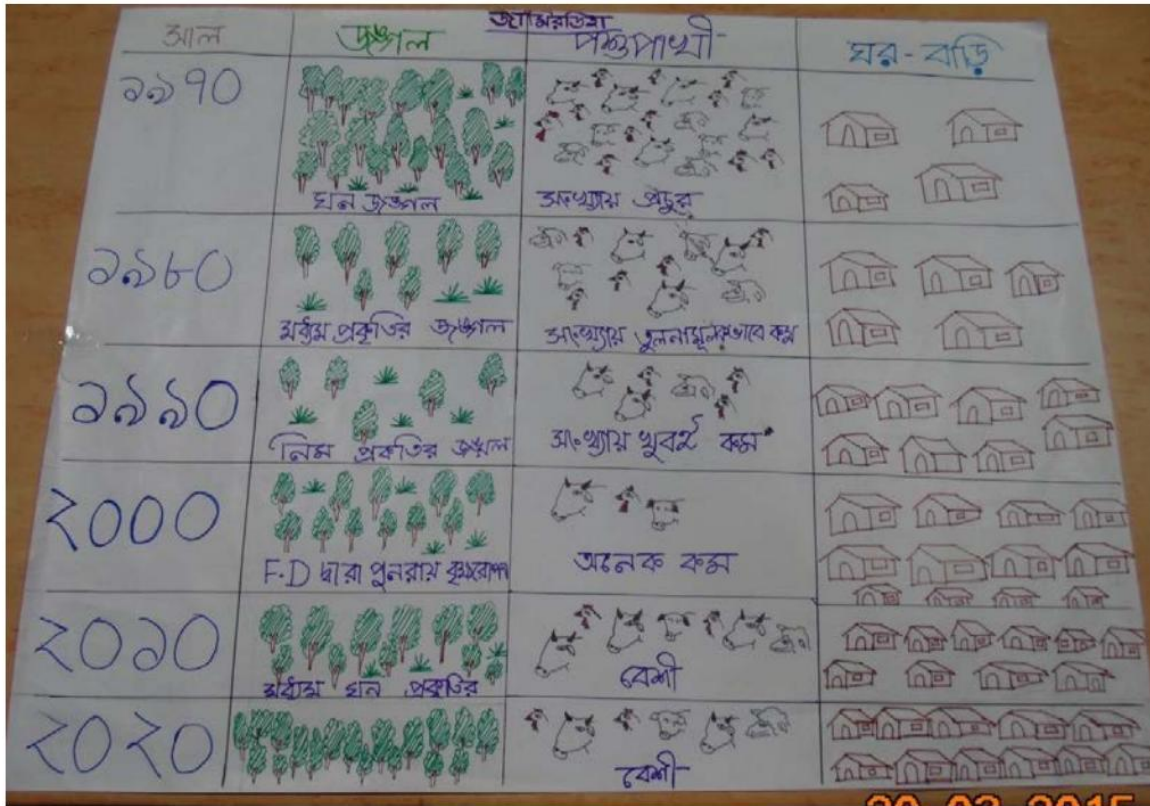 জামিরডিহা
সাল জঙ্গল পশুপাখী ঘর-বাড়ি
১৯৭০
ঘন জঙ্গল সংখ্যায় প্রচুর
১৯৮০
মধ্যম প্রকৃতির জঙ্গল সংখ্যায় তুলনামূলকভাবে কম
১৯৯০
নিম্ন প্রকৃতির জঙ্গল সংখ্যায় খুবই কম
২০০০
F.D দ্বারা পুনরায় অনেক কম
২০১০
মধ্যম ঘন প্রকৃতির বেশী
২০২০
বেশী